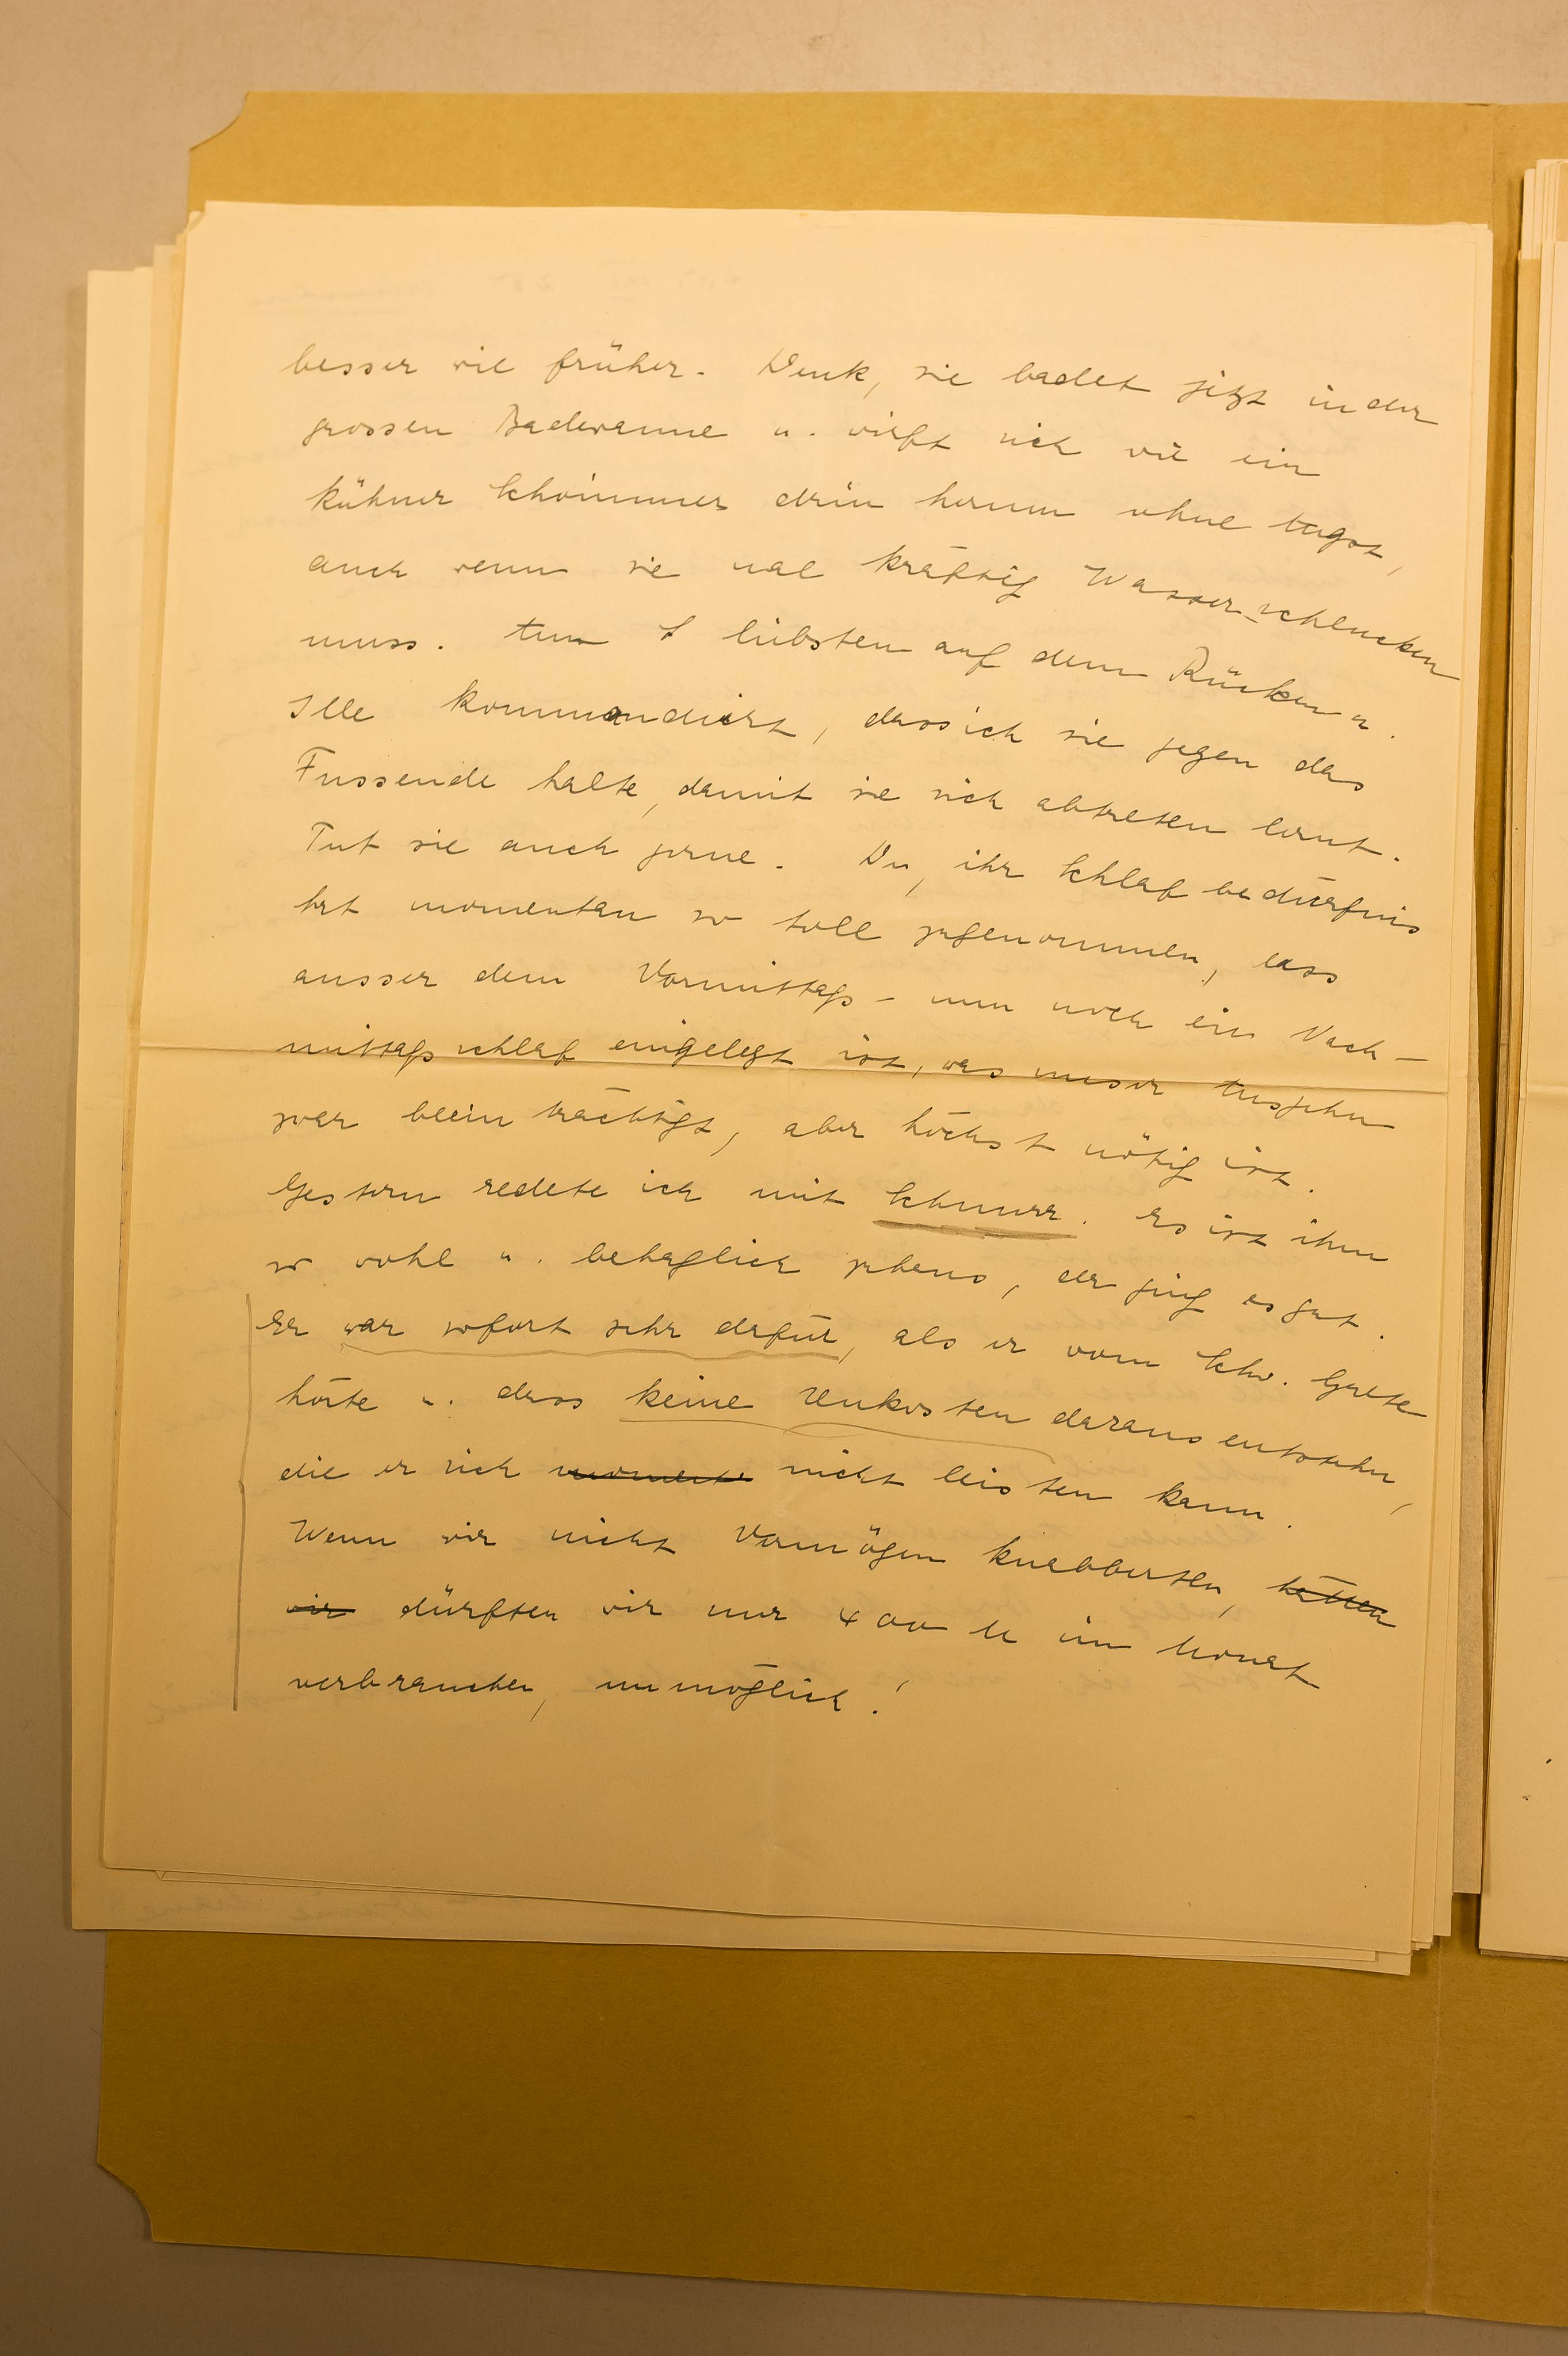 besser wie früher. Denk, sie badet jetzt in der
grossen Badewanne u. wirft sich wie ein
kühner Schwimmer drin herum ohne Angst,
auch wenn sie mal kräftig Wasser schlucken
muss. Am liebsten auf dem Rücken u.
Ille kommandiert, dass ich sie gegen das
Fussende halte, damit sie sich abtreten lernt.
Tut sie auch gerne. Du, ihr Schlafbedürfnis
hat momentan so toll zugenommen, dass
ausser dem Vormittags- nun noch ein Nach-
mittagsschlaf eingelegt ist, was unser Ausgehn
zwar beeinträchtigt, aber höchst nötig ist.
Gestern redete ich mit Schnurr. Es ist ihm
so wohl u. behaglich zuhaus, da ging es gut.
Er war sofort sehr dafür, als er vom Schw. Grete
hörte u. dass keine Unkosten daraus entstehn,
die er sich momenta nicht leisten kann.
Wenn wir nicht Vermögen knabberten, hätten
wir dürften wir nur 400 M im Monat
verbrauchen, unmöglich!